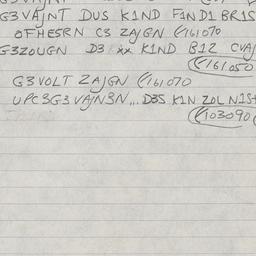 G3VAJNT DUS K1ND F1ND1 BR1S
OFHESRN C3 ZAJGN (/161070
G3ZOUGN D3 K1ND B1Z CVAJ
(/161.050
G3VOLT ZAJGN (/161070
UPC3G3 VAJN3N,.. D3S K1N ZOL N1ST
(/103090